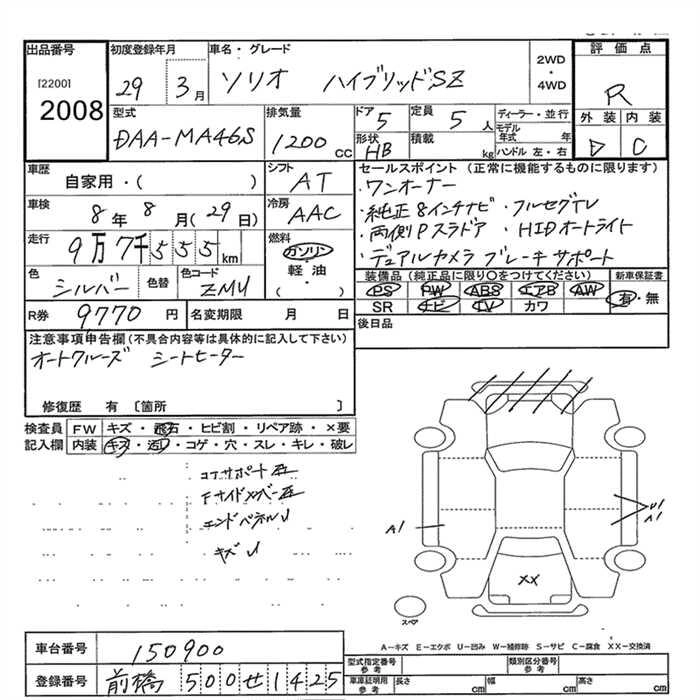 出品番号
[2200]
2008
初度登録年月
29 3月
車名・グレード
ソリオ ハイブリッドSZ
2WD
・
4WD
評価点
R
外装 内装
D C
型式
DAA-MA46S
排気量
1200 cc
ドア
5
形状
HB
定員
5人
積載
kg
ディーラー・並行
モデル年式 年
ハンドル 左・右
車歴
自家用・( )
シフト
AT
車検
8年 8月(29日)
冷房
AAC
走行
9万7千555km
燃料
ガソリン
・
軽油
( )
色
シルバー
色替
色コード
ZMU
R券
9770円
名変期限 月 日
セールスポイント (正常に機能するものに限ります)
・ワンオーナー
・純正8インチナビ ・フルセグTV
・両側Pスラドア ・HIDオートライト
・デュアルカメラブレーキサポート
装備品(純正品に限り○をつけてください)
PS PW ABS エアB AW
SR ナビ TV カワ
新車保証書
有・無
後日品
注意事項申告欄(不具合内容等は具体的に記入して下さい)
オートクルーズ シートヒーター
修復歴 有 〔箇所 〕
検査員
記入欄
FW キズ・飛石・ヒビ割・リペア跡・×要
内装 キズ・汚レ・コゲ・穴・スレ・キレ・破レ
コアサポート
Fサイドメンバー
エンドパネルU
キズU
A1
U1
A1
XX
スペア
A-キズ E-エクボ U-凹み W-補修跡 S-サビ C-腐食 XX-交換済
車台番号
150900
登録番号
前橋 500 せ 1425
型式指定番号
参考
類別区分番号
参考
車庫証明用
参考
長さ cm
幅 cm
高さ cm